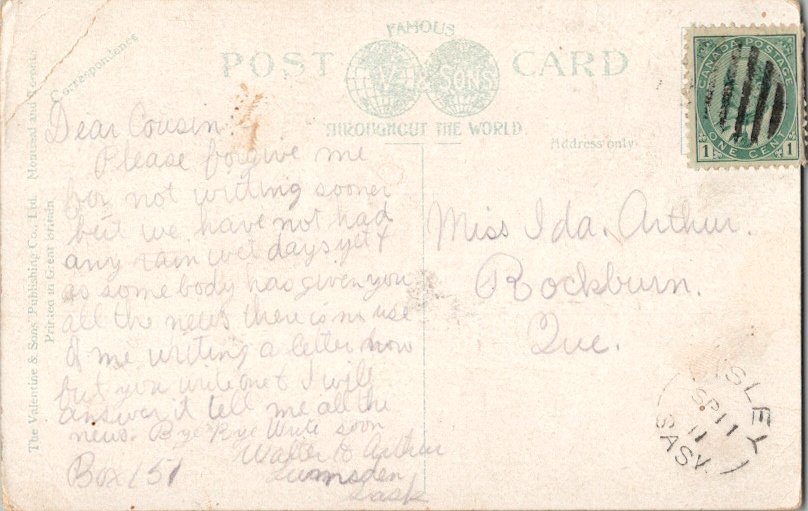 FAMOUS
POST CARD
V. & SONS
THROUGHOUT THE WORLD
Correspondence
Address only
The Valentine & Sons' Publishing Co., Ltd. Montreal and Toronto
Printed in Great Britain
CANADA POSTAGE
ONE CENT
1 1
Dear Cousin
Please forgive me
for not writing sooner
but we have not had
any rain wet days yet &
as some body has given you
all the news there is no use
of me writing a letter now
but you write one & I will
answer it tell me all the
news. Bye Bye Write soon
Walter Arthur
Box 151
Lumsden
Sask
Miss Ida. Arthur.
Rockburn.
Que.
SLEY
SP 11
11
SASK.